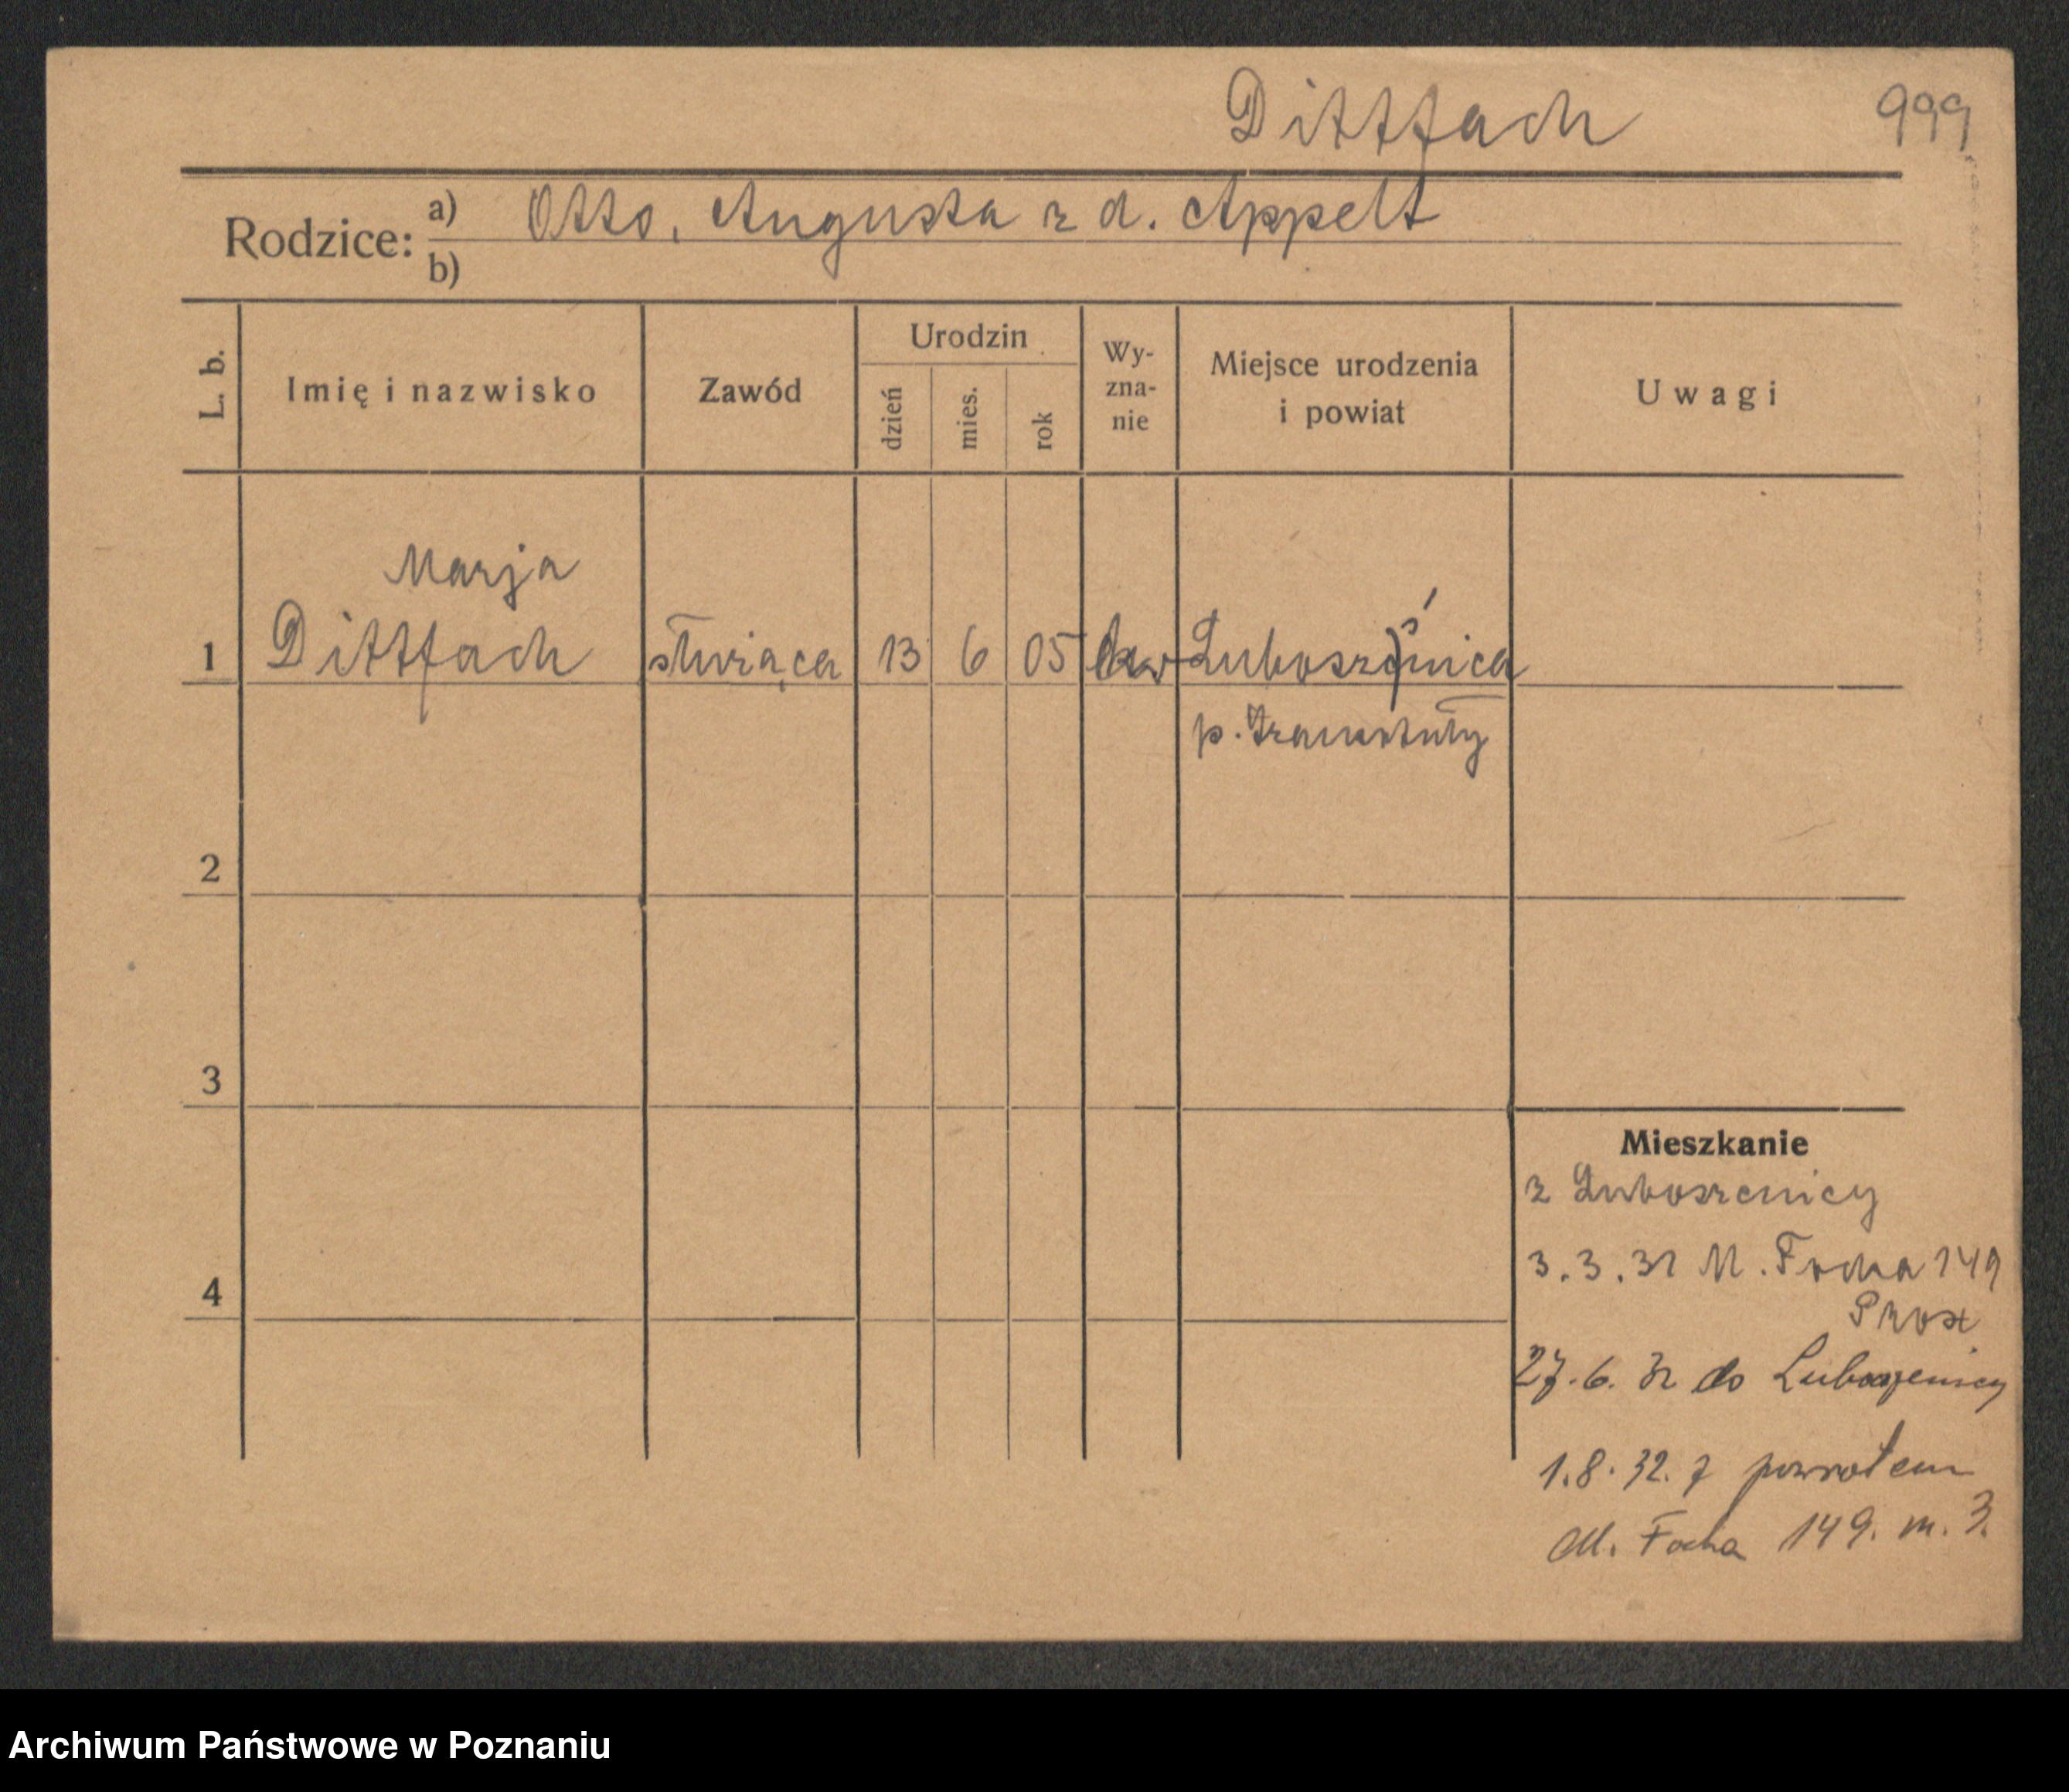 Dittfach 999
Rodzice: a) Otto, Augusta z d. Appelt
b)
L. b. Imię i nazwisko Zawód Urodzin dzień mies. rok Wy-zna-nie Miejsce urodzenia i powiat Uwagi
Marja
1 Dittfach służąca 13 6 05 Luboszśnica
p. Szamotuły
2
3
Mieszkanie
z Luboszenicy
4 3.3.32 M. Focha 149
27.6.32 do Luboszenicy
1.8.32. z powrotem
M. Focha 149. m. 3.
Archiwum Państwowe w Poznaniu